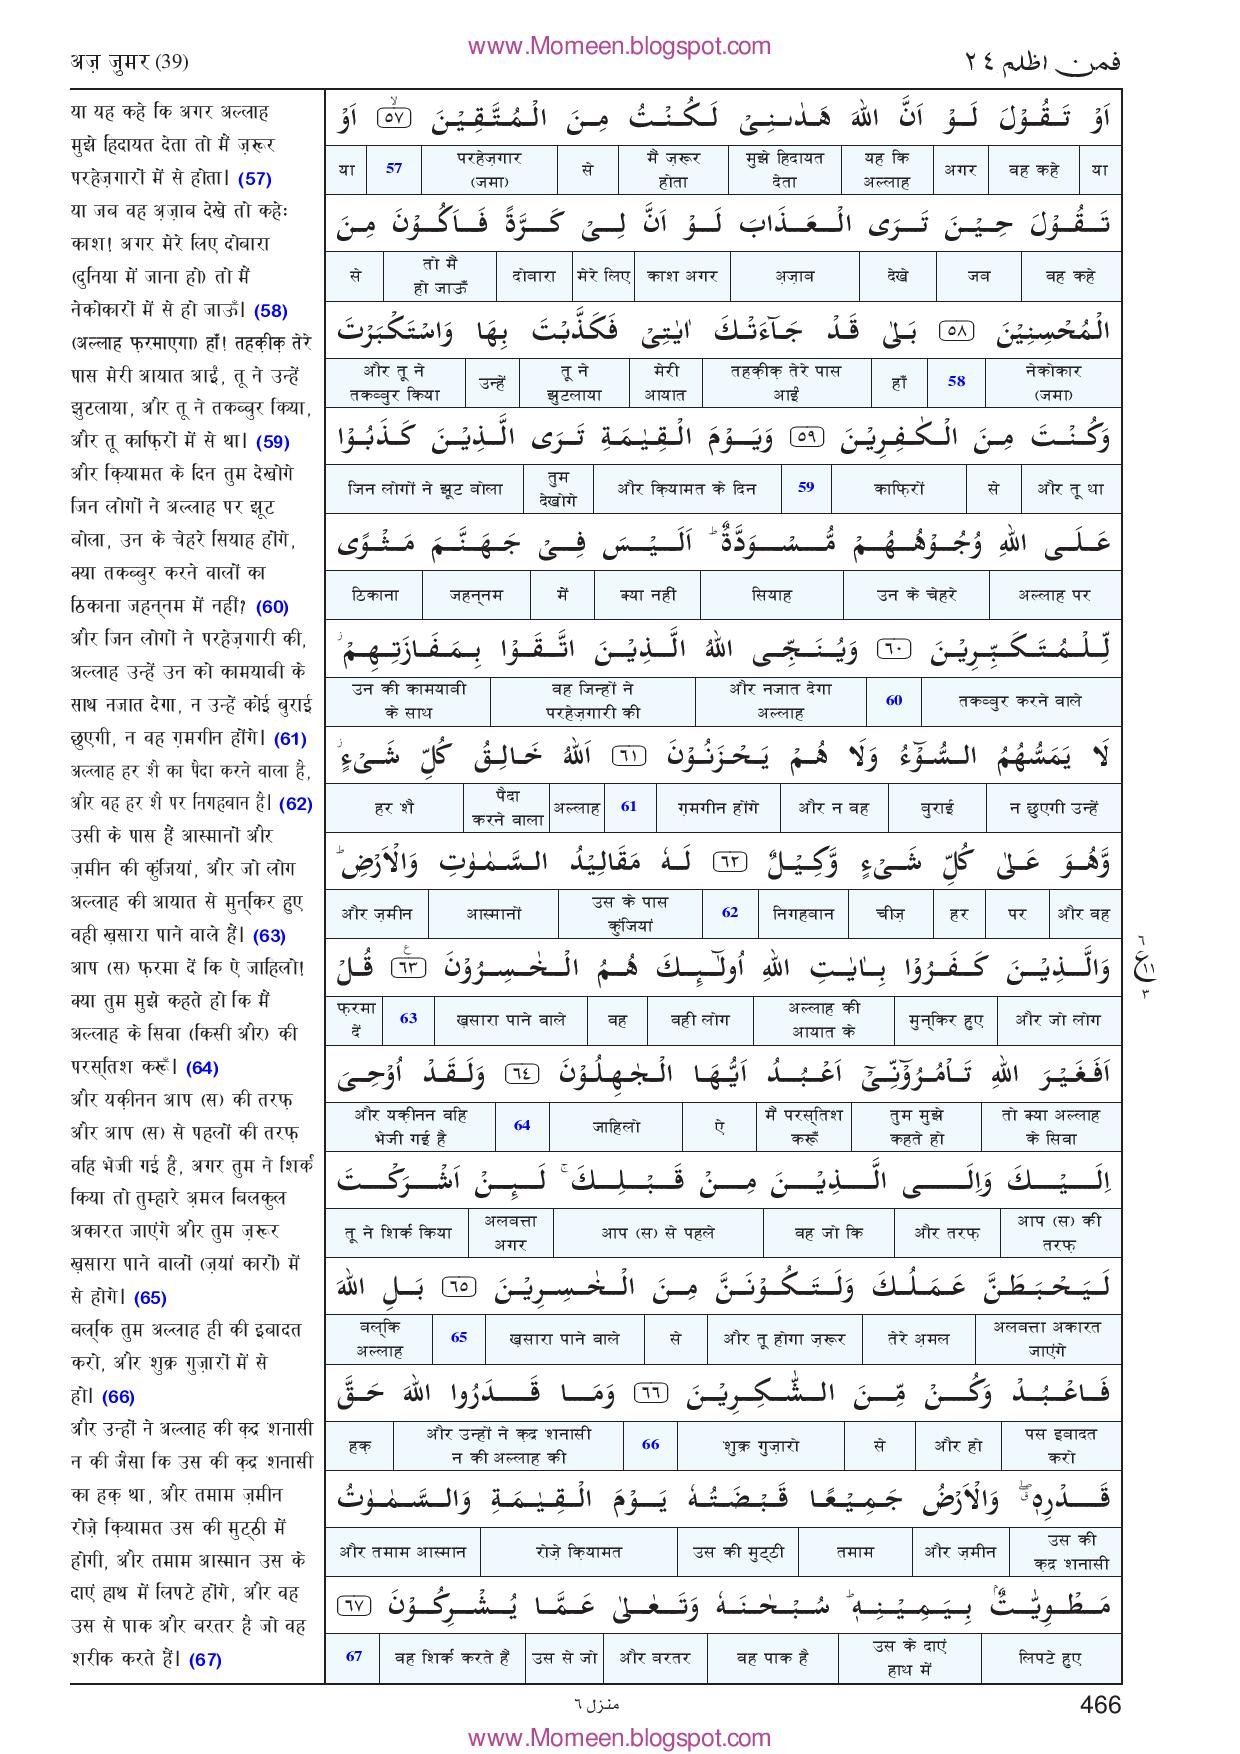 www.Momeen.blogspot.com
अज़ ज़ुमर (39)
فمن اظلم ٢٤
या यह कहे कि अगर अल्लाह
मुझे हिदायत देता तो मैं ज़रूर
परहेज़गारों में से होता। (57)
या जब वह अ़ज़ाब देखे तो कहेः
काश! अगर मेरे लिए दोबारा
(दुनिया में जाना हो) तो मैं
नेकोकारों में से हो जाऊँ। (58)
(अल्लाह फ़रमाएगा) हाँ! तहक़ीक़ तेरे
पास मेरी आयात आईं, तू ने उन्हें
झुटलाया, और तू ने तकब्बुर किया,
और तू काफ़िरों में से था। (59)
और क़ियामत के दिन तुम देखोगे
जिन लोगों ने अल्लाह पर झूट
बोला, उन के चेहरे सियाह होंगे,
क्या तकब्बुर करने वालों का
ठिकाना जहन्नम में नहीं? (60)
और जिन लोगों ने परहेज़गारी की,
अल्लाह उन्हें उन को कामयाबी के
साथ नजात देगा, न उन्हें कोई बुराई
छुएगी, न वह ग़मगीन होंगे। (61)
अल्लाह हर शै का पैदा करने वाला है,
और वह हर शै पर निगहबान है। (62)
उसी के पास हैं आस्मानों और
ज़मीन की कुंजियां, और जो लोग
अल्लाह की आयात से मुन्किर हुए
वही ख़सारा पाने वाले हैं। (63)
आप (स) फ़रमा दें कि ऐ जाहिलो!
क्या तुम मुझे कहते हो कि मैं
अल्लाह के सिवा (किसी और) की
परस्तिश करूँ। (64)
और यक़ीनन आप (स) की तरफ़
और आप (स) से पहलों की तरफ़
वहि भेजी गई है, अगर तुम ने शिर्क
किया तो तुम्हारे अ़मल बिलकुल
अकारत जाएंगे और तुम ज़रूर
ख़सारा पाने वालों (ज़यां कारों) में
से होगे। (65)
बल्कि तुम अल्लाह ही की इबादत
करो, और शुक्र गुज़ारों में से
हो। (66)
और उन्हों ने अल्लाह की क़द्र शनासी
न की जैसा कि उस की क़द्र शनासी
का हक़ था, और तमाम ज़मीन
रोज़े क़ियामत उस की मुट्ठी में
होगी, और तमाम आस्मान उस के
दाएं हाथ में लिपटे होंगे, और वह
उस से पाक और बरतर है जो वह
शरीक करते हैं। (67)
اَوْ تَقُوْلَ لَوْ اَنَّ اللّٰهَ هَدٰىنِىْ لَكُنْتُ مِنَ الْمُتَّقِيْنَ ۙ ٥٧ اَوْ
या वह कहे अगर यह कि अल्लाह मुझे हिदायत देता मैं ज़रूर होता से परहेज़गार (जमा) 57 या
تَقُوْلَ حِيْنَ تَرَى الْعَذَابَ لَوْ اَنَّ لِىْ كَرَّةً فَاَكُوْنَ مِنَ
वह कहे जब देखे अ़ज़ाब काश अगर मेरे लिए दोबारा तो मैं हो जाऊँ से
الْمُحْسِنِيْنَ ٥٨ بَلٰى قَدْ جَآءَتْكَ اٰيٰتِىْ فَكَذَّبْتَ بِهَا وَاسْتَكْبَرْتَ
नेकोकार (जमा) 58 हाँ तहक़ीक़ तेरे पास आईं मेरी आयात तू ने झुटलाया उन्हें और तू ने तकब्बुर किया
وَكُنْتَ مِنَ الْكٰفِرِيْنَ ٥٩ وَيَوْمَ الْقِيٰمَةِ تَرَى الَّذِيْنَ كَذَبُوْا
और तू था से काफ़िरों 59 और क़ियामत के दिन तुम देखोगे जिन लोगों ने झूट बोला
عَلَى اللّٰهِ وُجُوْهُهُمْ مُّسْوَدَّةٌ ؕ اَلَيْسَ فِىْ جَهَنَّمَ مَثْوًى
अल्लाह पर उन के चेहरे सियाह क्या नहीं में जहन्नम ठिकाना
لِّلْمُتَكَبِّرِيْنَ ٦٠ وَيُنَجِّى اللّٰهُ الَّذِيْنَ اتَّقَوْا بِمَفَازَتِهِمْ ؗ
तकब्बुर करने वाले 60 और नजात देगा अल्लाह वह जिन्हों ने परहेज़गारी की उन की कामयाबी के साथ
لَا يَمَسُّهُمُ السُّوْٓءُ وَلَا هُمْ يَحْزَنُوْنَ ٦١ اَللّٰهُ خَالِقُ كُلِّ شَىْءٍ ؗ
न छुएगी उन्हें बुराई और न वह ग़मगीन होंगे 61 अल्लाह पैदा करने वाला हर शै
وَّهُوَ عَلٰى كُلِّ شَىْءٍ وَّكِيْلٌ ٦٢ لَهٗ مَقَالِيْدُ السَّمٰوٰتِ وَالْاَرْضِ ؕ
और वह पर हर चीज़ निगहबान 62 उस के पास कुंजियां आस्मानों और ज़मीन
وَالَّذِيْنَ كَفَرُوْا بِاٰيٰتِ اللّٰهِ اُولٰٓئِكَ هُمُ الْخٰسِرُوْنَ ࣖ ٦٣ قُلْ
٦
ع ١١
٣
और जो लोग मुन्किर हुए अल्लाह की आयात के वही लोग वह ख़सारा पाने वाले 63 फ़रमा दें
اَفَغَيْرَ اللّٰهِ تَاْمُرُوْٓنِّىْٓ اَعْبُدُ اَيُّهَا الْجٰهِلُوْنَ ٦٤ وَلَقَدْ اُوْحِىَ
तो क्या अल्लाह के सिवा तुम मुझे कहते हो मैं परस्तिश करूँ ऐ जाहिलो 64 और यक़ीनन वहि भेजी गई है
اِلَيْكَ وَاِلَى الَّذِيْنَ مِنْ قَبْلِكَ ۚ لَئِنْ اَشْرَكْتَ
आप (स) की तरफ़ और तरफ़ वह जो कि आप (स) से पहले अलबत्ता अगर तू ने शिर्क किया
لَيَحْبَطَنَّ عَمَلُكَ وَلَتَكُوْنَنَّ مِنَ الْخٰسِرِيْنَ ٦٥ بَلِ اللّٰهَ
अलबत्ता अकारत जाएंगे तेरे अ़मल और तू होगा ज़रूर से ख़सारा पाने वाले 65 बल्कि अल्लाह
فَاعْبُدْ وَكُنْ مِّنَ الشّٰكِرِيْنَ ٦٦ وَمَا قَدَرُوا اللّٰهَ حَقَّ
पस इबादत करो और हो से शुक्र गुज़ारो 66 और उन्हों ने क़द्र शनासी न की अल्लाह की हक़
قَدْرِهٖ ۖ وَالْاَرْضُ جَمِيْعًا قَبْضَتُهٗ يَوْمَ الْقِيٰمَةِ وَالسَّمٰوٰتُ
उस की क़द्र शनासी और ज़मीन तमाम उस की मुट्ठी रोज़े क़ियामत और तमाम आस्मान
مَطْوِيّٰتٌۢ بِيَمِيْنِهٖ ؕ سُبْحٰنَهٗ وَتَعٰلٰى عَمَّا يُشْرِكُوْنَ ٦٧
लिपटे हुए उस के दाएं हाथ में वह पाक है और बरतर उस से जो वह शिर्क करते हैं 67
منزل ٦
466
www.Momeen.blogspot.com